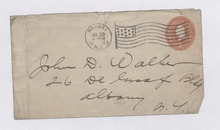 John D. Walker
26 De Graaf Bldg
Albany
N.Y.